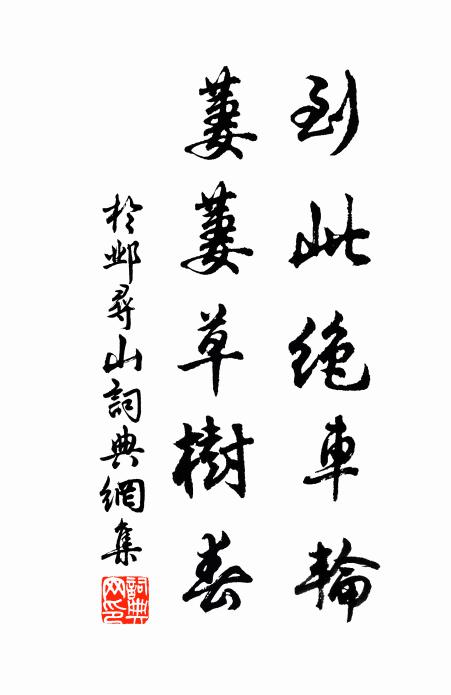 到此絶車輪
萋萋草樹春
於邺尋山詞典網集
詞典网印